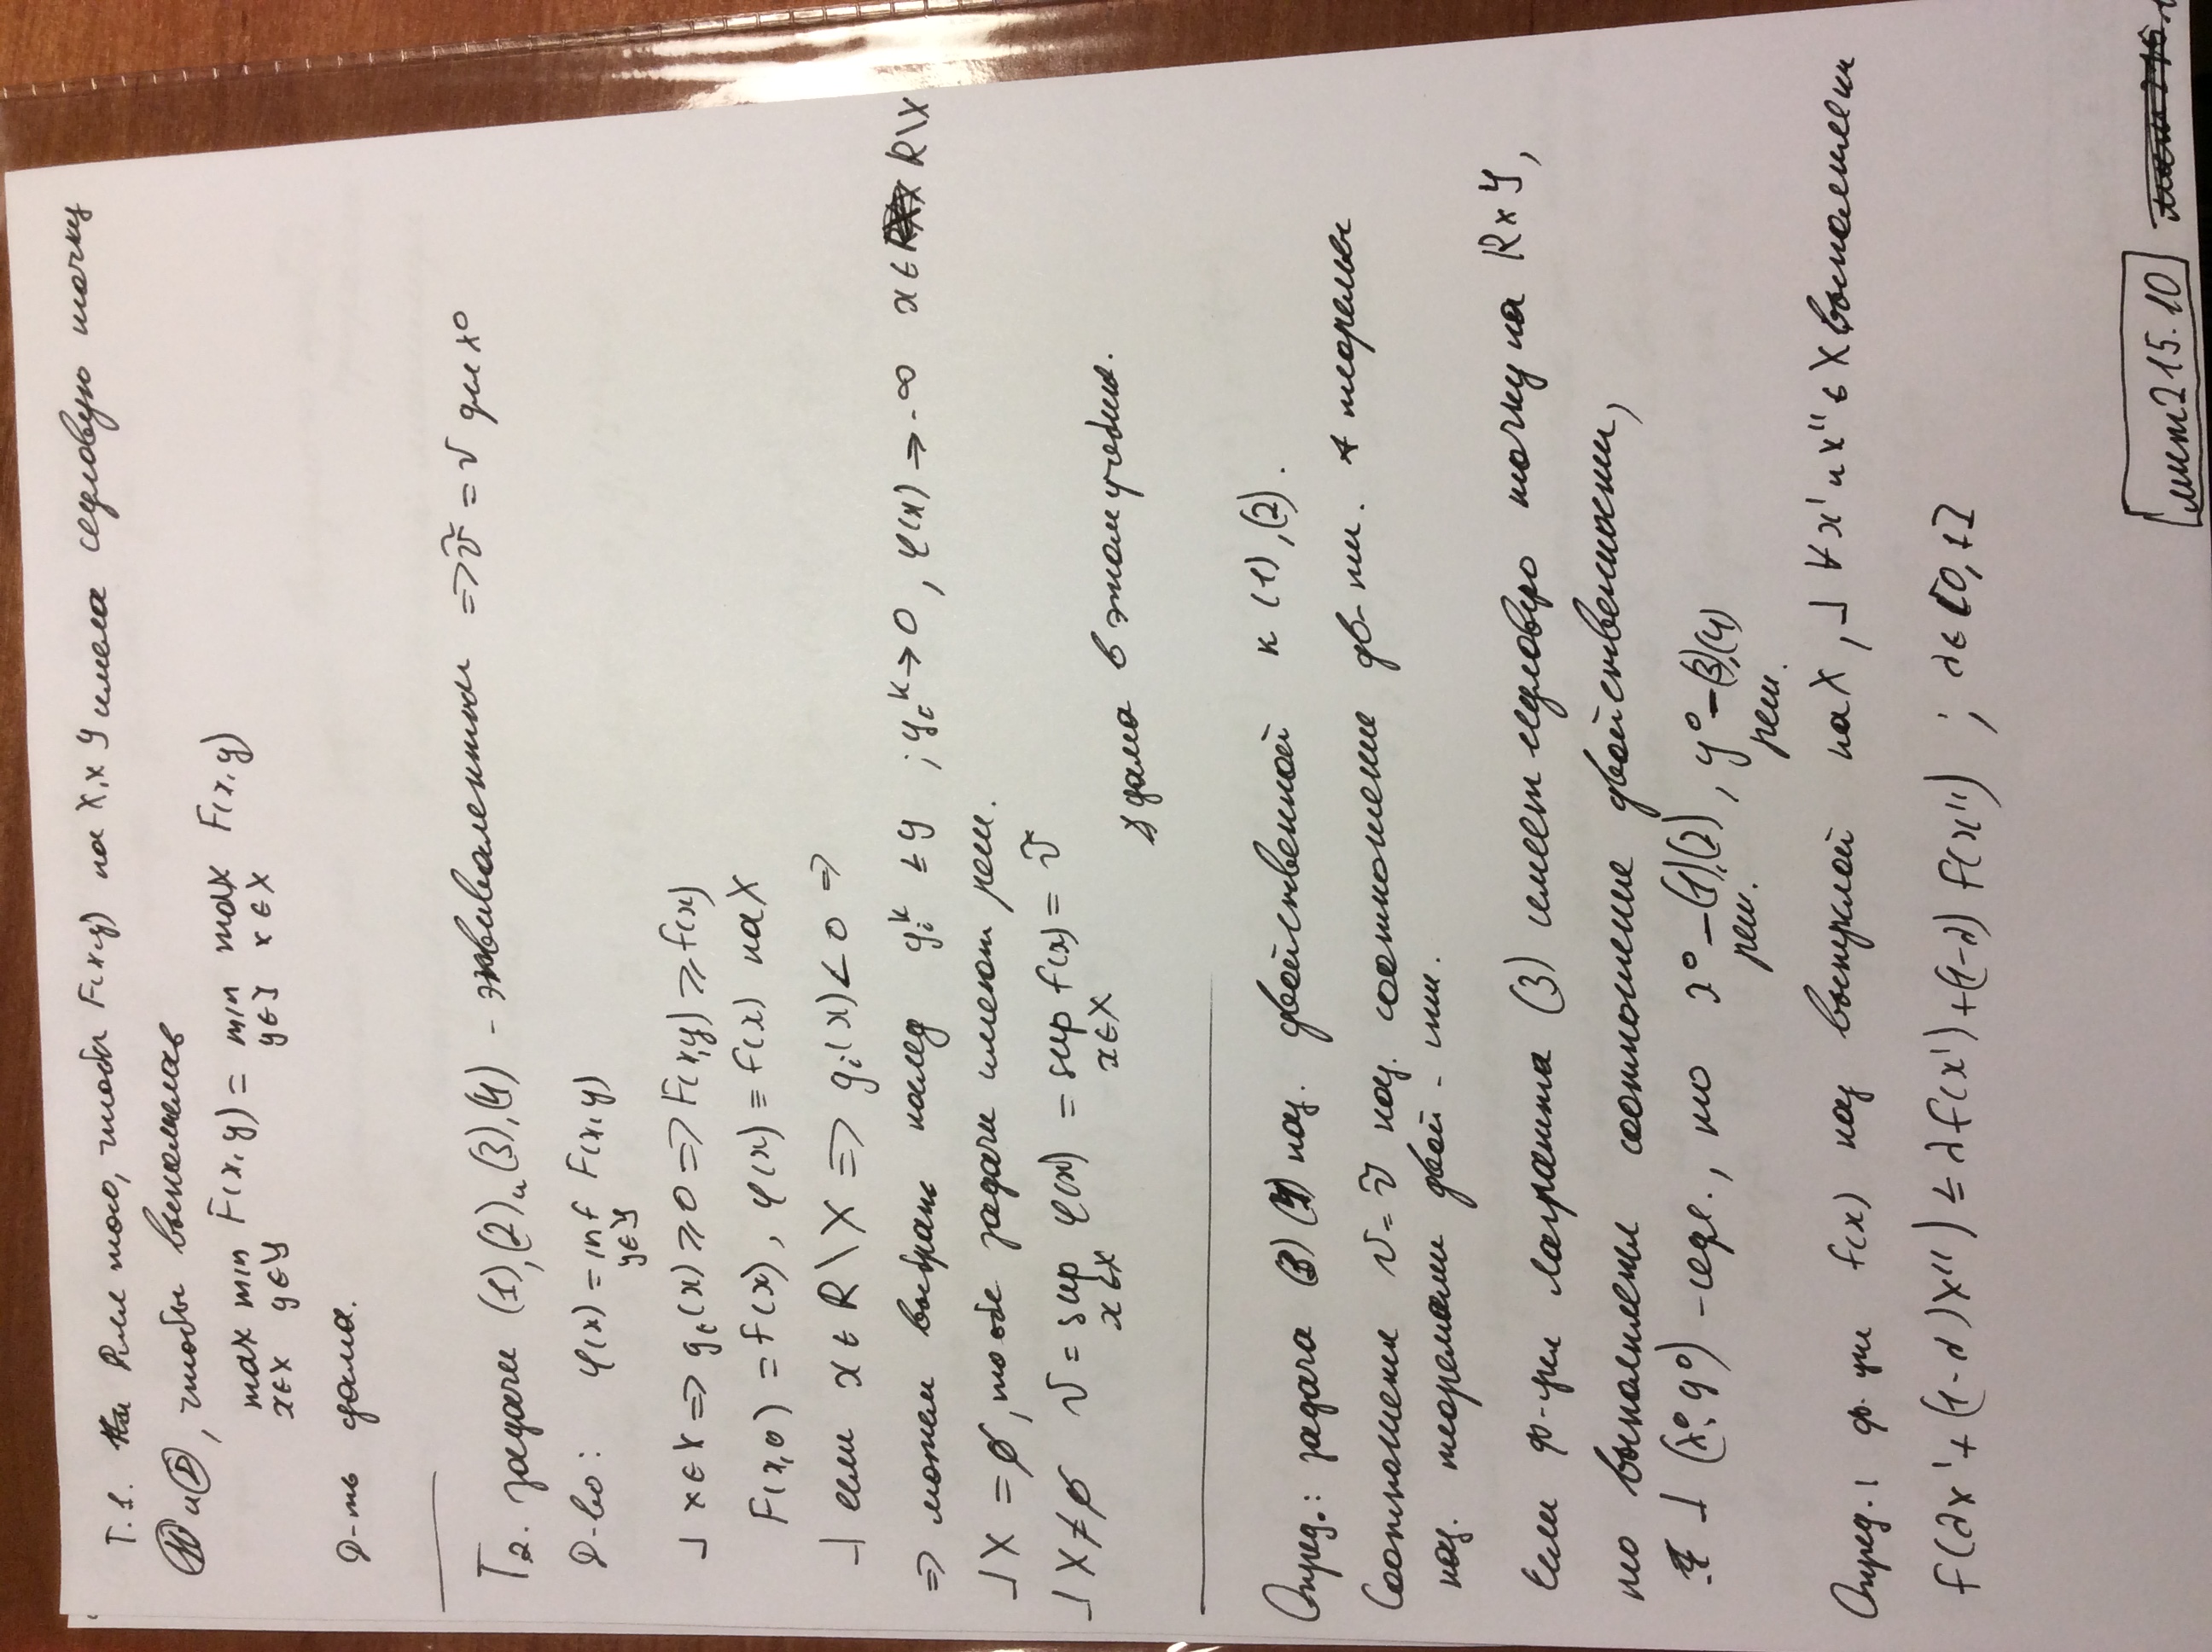 Т.1. Для того, чтобы F(x,y) на X,x Y имела седловую точку
(Н) и (Д), чтобы выполнялось
max min F(x,y) = min max F(x,y)
x∈X y∈Y y∈Y x∈X
Д-ть дома.
Т2. задачи (1),(2) и (3),(4) - эквивалентны => ṽ = v для x⁰
Д-во: φ(x) = inf F(x,y)
y∈Y
⅃ x∈X => gᵢ(x) ≥ 0 => F(x,y) ≥ f(x)
F(x,0) = f(x), φ(x) ≡ f(x) на X
⅃ если x ∈ R \ X => gᵢ(x) < 0 =>
=> можем выбрать послед yᵢᵏ ≤ y ; yᵢᵏ → 0, φ(x) → -∞ x ∈ R \ X
⅃ X = ∅, то обе задачи имеют реш.
⅃ X ≠ ∅ v = sup φ(x) = sup f(x) = ṽ
x∈X x∈X
дома в этом учебник.
Опред.: задача (3) (4) наз. двойственной к (1),(2).
Соотношение v = ṽ наз. соотношение дв-ти. теоремы
наз. теоремами двой-сти.
Если ф-ция Лагранжа (3) имеет седловую точку на R x Y,
то выполняется соотношение двойственности,
⅃ (x⁰, y⁰) - седл., то x⁰ - (1),(2), y⁰ - (3),(4)
реш. реш.
Опред.: ф-ция f(x) наз выпуклой на X, ⅃ ∀ x' и x'' ∈ X выполняется
f(λx' + (1-λ)x'') ≤ λf(x') + (1-λ) f(x'') ; λ ∈ [0,1]
лист215.10